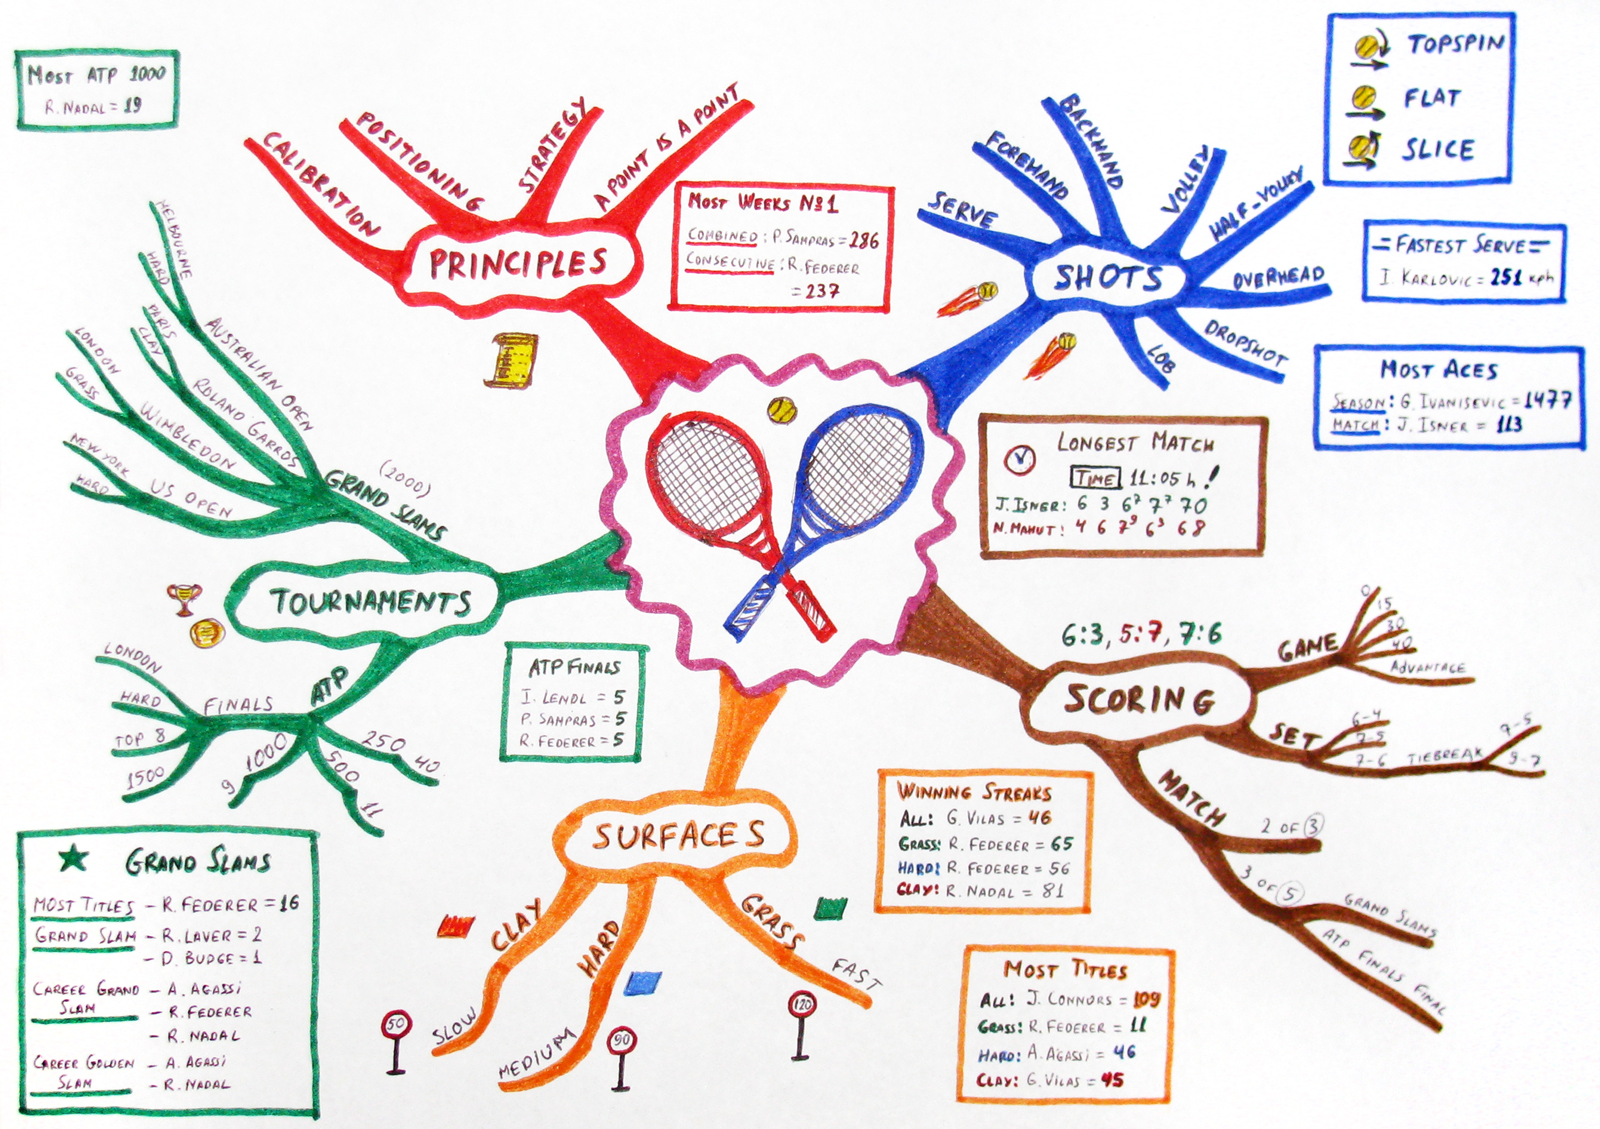 Most ATP 1000
R. Nadal = 19
CALIBRATION
POSITIONING
STRATEGY
A POINT IS A POINT
PRINCIPLES
Most Weeks №1
Combined: P. Sampras = 286
Consecutive: R. Federer
= 237
SERVE
FOREHAND
BACKHAND
VOLLEY
HALF-VOLLEY
OVERHEAD
DROPSHOT
LOB
SHOTS
TOPSPIN
FLAT
SLICE
=Fastest Serve=
I. Karlovic = 251 kph
Most Aces
Season: G. Ivanisevic = 1477
Match: J. Isner = 113
Longest Match
Time 11:05 h!
J. Isner: 6 3 6⁷ 7⁷ 70
N. Mahut: 4 6 7⁹ 6³ 68
MELBOURNE
HARD
AUSTRALIAN OPEN
PARIS
CLAY
ROLAND GARROS
LONDON
GRASS
WIMBLEDON
NEW YORK
HARD
US OPEN
(2000)
GRAND SLAMS
TOURNAMENTS
ATP
FINALS
LONDON
HARD
TOP 8
1500
1000
9
500
11
250
40
ATP Finals
I. Lendl = 5
P. Sampras = 5
R. Federer = 5
6:3, 5:7, 7:6
SCORING
GAME
0
15
30
40
ADVANTAGE
SET
6-4
7-5
7-6
TIEBREAK
7-5
9-7
MATCH
2 OF 3
3 OF 5
GRAND SLAMS
ATP FINALS FINAL
SURFACES
CLAY
SLOW
50
HARD
MEDIUM
90
GRASS
FAST
120
Winning Streaks
All: G. Vilas = 46
Grass: R. Federer = 65
Hard: R. Federer = 56
Clay: R. Nadal = 81
Most Titles
All: J. Connors = 109
Grass: R. Federer = 11
Hard: A. Agassi = 46
Clay: G. Vilas = 45
Grand Slams
Most Titles - R. Federer = 16
Grand Slam - R. Laver = 2
- D. Budge = 1
Career Grand - A. Agassi
Slam - R. Federer
- R. Nadal
Career Golden - A. Agassi
Slam - R. Nadal